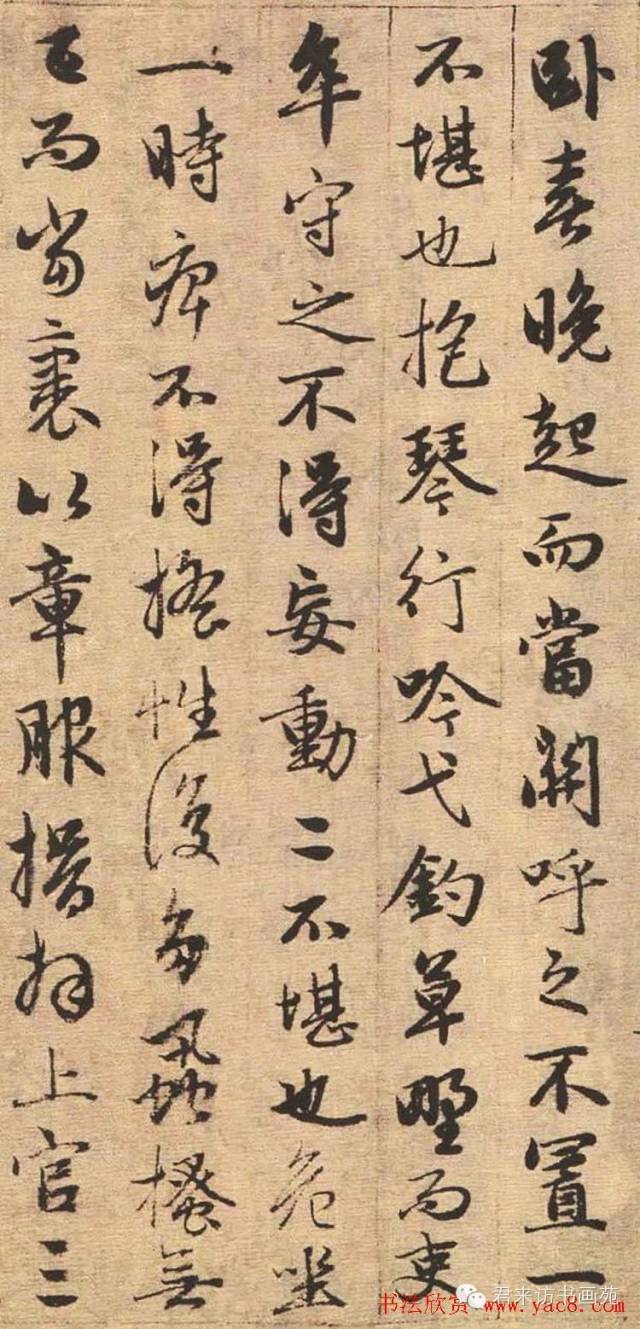 卧喜晚起而當関呼之不置一
不堪也抱琴行吟弋釣草野而吏
卒守之不得妄動二不堪也危坐
一時痺不得搖性復多蝨搔無
已而當裹以章服揖拜上官三
书法欣赏www.yac8.com
君来访书画苑